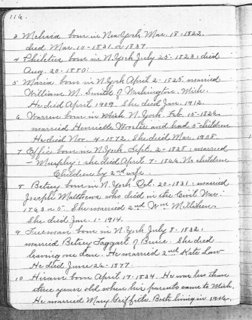 116.
3 Melvira born in New York Mar. 18-1822.
died Mar. 10-1831 or 1837.
4 Philetus born in N.York July 25-1823; died
Aug. 20-1880.
5 Maria born in N.York April 2-1825; married
William M. Smith of Washington, Mich.
He died April 1909. She died Jan. 1912.
6 Warren born in Wash. N.York. Feb. 15-1826.
married Henriette and had 5 children
He died Nov. 4-1872. She died Mar. 1908.
7 born in N.York Sept. 2-1828; married
Murphy; she died April 7-1862. No children
Children by 2nd wife
8 Betsey born in N.York Oct. 20-1831; married
Joseph Matthews who died in the Civil War.
She married 2nd Wm McMahon.
She died Jan. 1-1914.
9 Freeman born in N.York July 8-1832;
married Betsey Taggart of Bruce. She died
leaving one dau. He married 2nd Kate Law
He died June 26-1877.
10 Hiram born April 17-1834. He was less than
three years old when his parents came to Mich.
He married Mary Griffith. Both living in 1916.